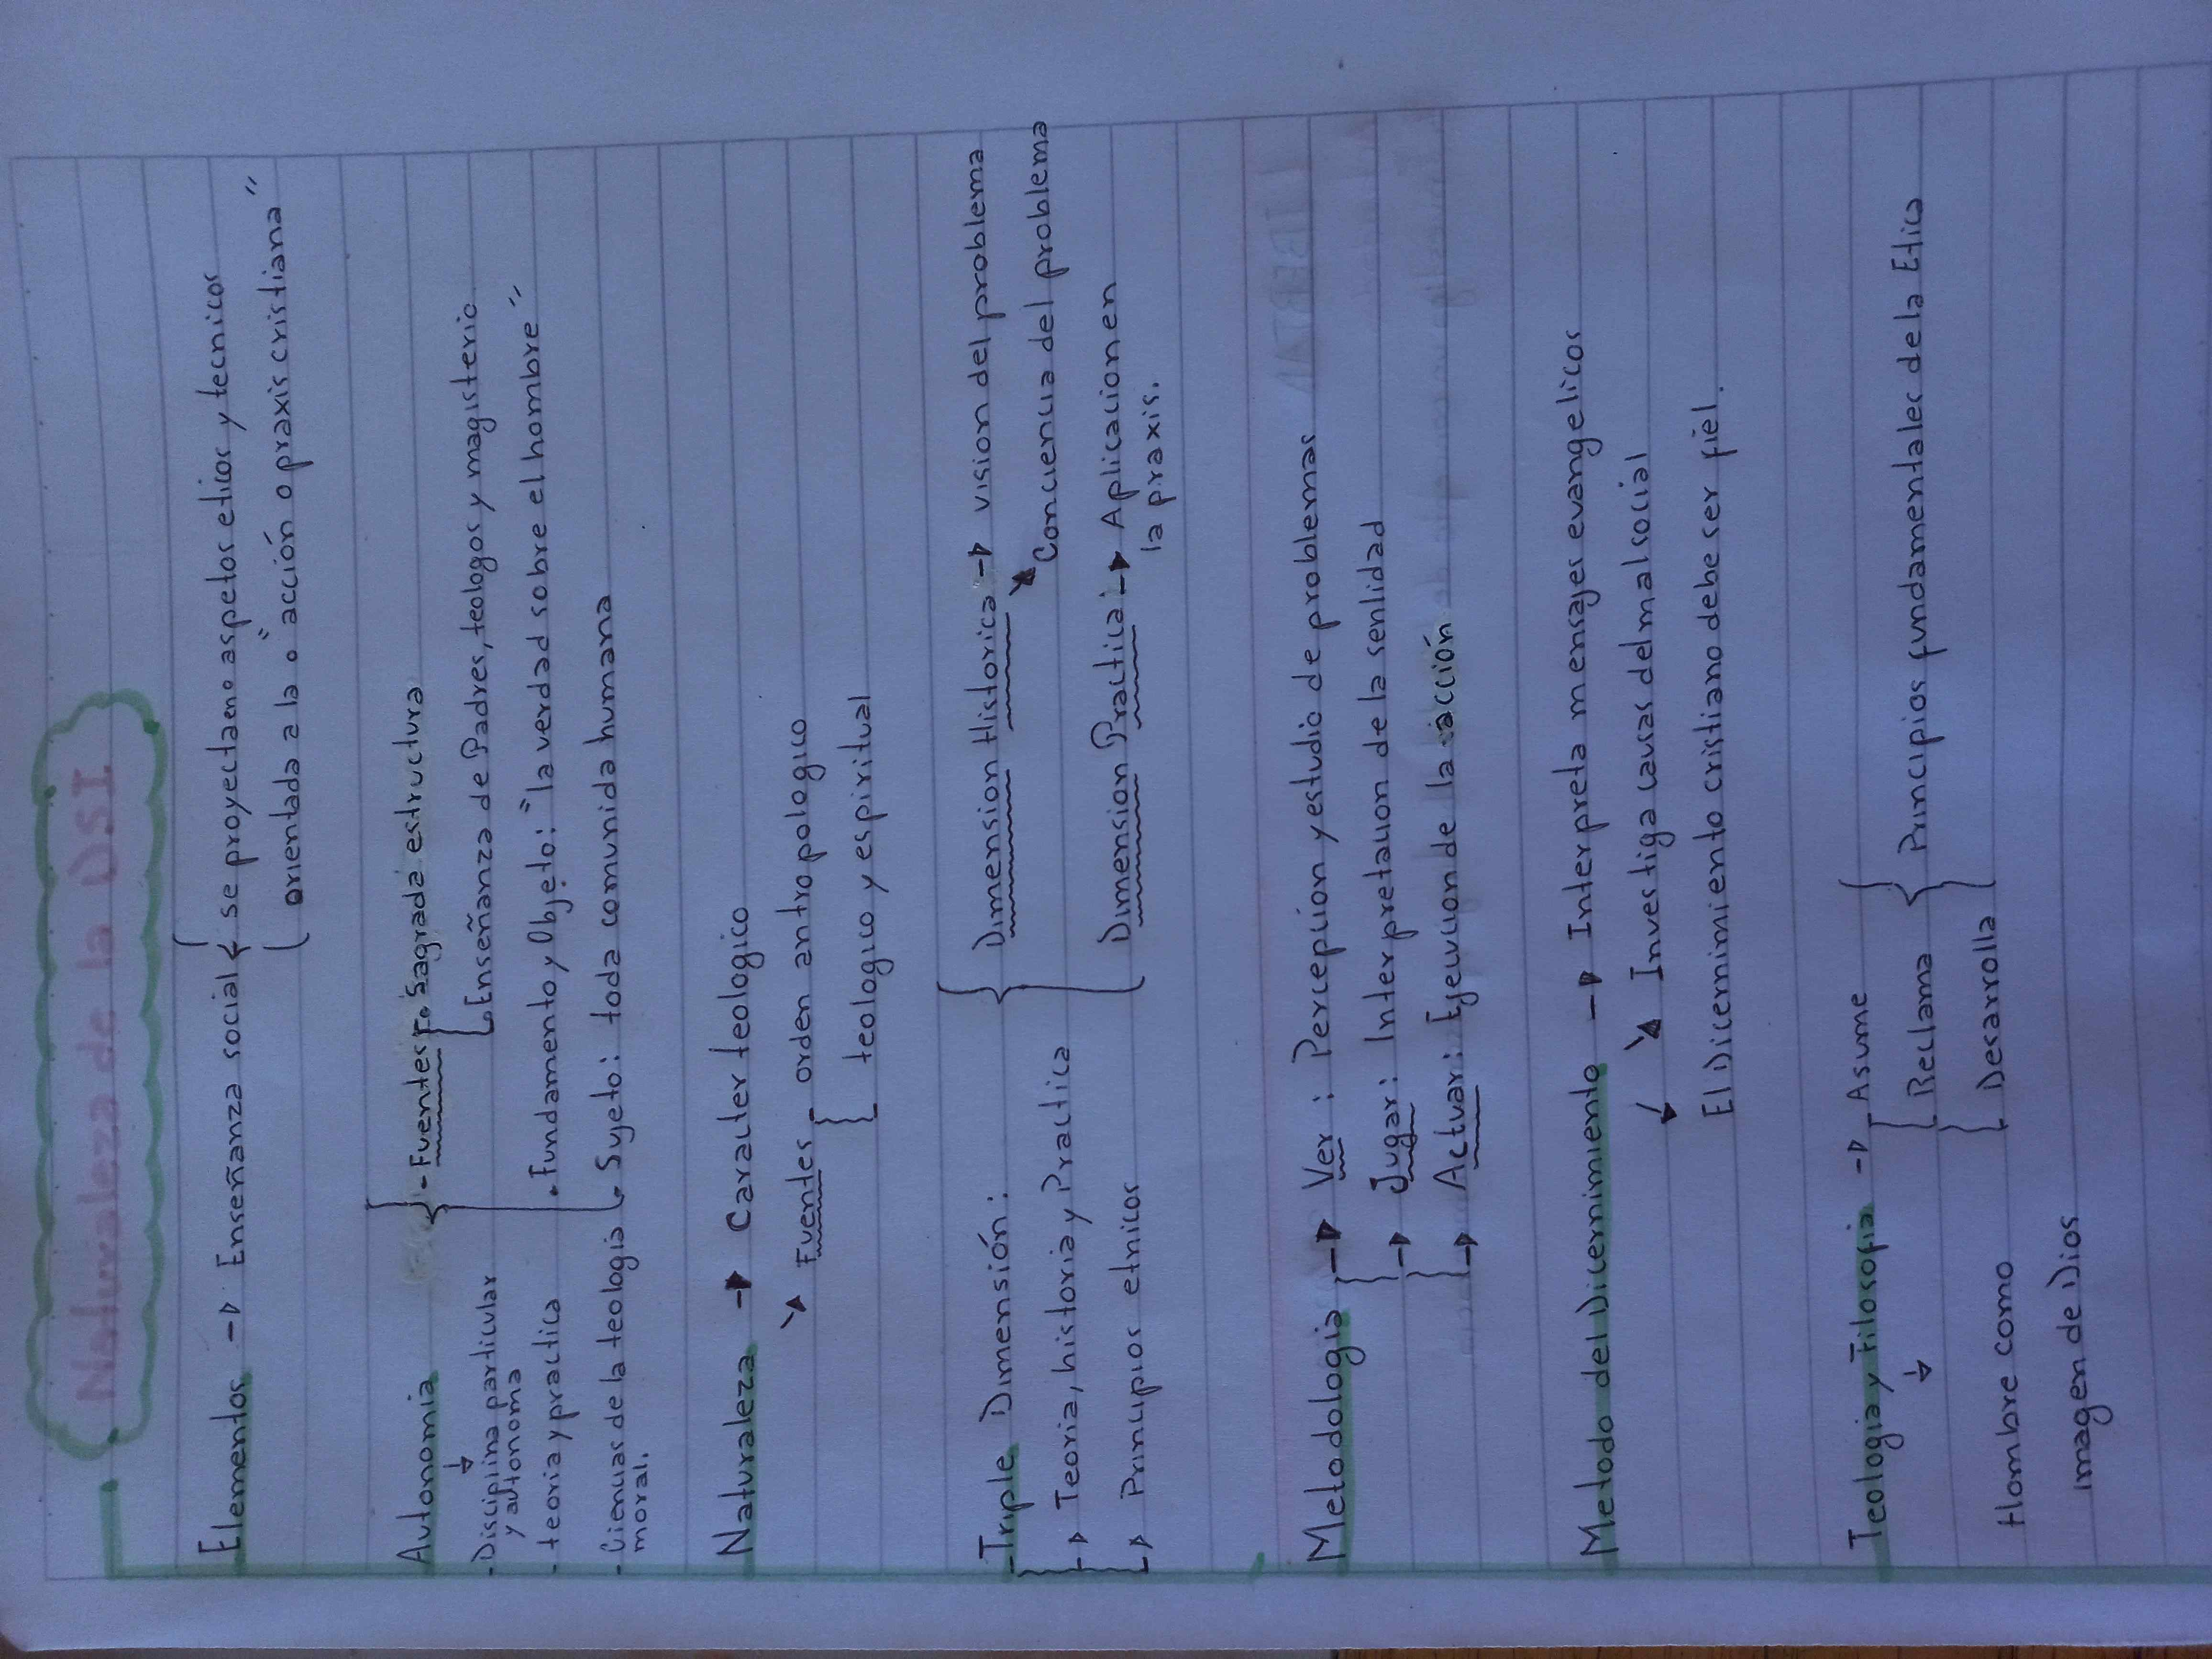 Naturaleza de la DSI
Elementos → Enseñanza social { se proyecta en aspetos eticos y tecnicos
orientada a la "acción o praxis cristiana"
Autonomia { - Fuentes { • Sagrada estructura
• Enseñanza de Padres, teologos y magisterio
- Disciplina particular
y autonoma
• Fundamento y Objeto: "la verdad sobre el hombre"
- teoria y practica
• Sujeto: toda comunida humana
- Ciencias de la teologia
moral.
Naturaleza → Caracter teologico
↘ Fuentes { orden antropologico
teologico y espiritual
- Triple Dimensión:
→ Teoria, historia y Practica { Dimension Historica → vision del problema
↘ Conciencia del problema
Dimension Practica → Aplicacion en
la praxis.
→ Principios etnicos
Metodologia → Ver: Percepcion y estudio de problemas
→ Jugar: Interpretacion de la senlidad
→ Actuar: Ejecucion de la acción
Metodo del Dicernimiento → Interpreta mensajes evangelicos
↘ Investiga causas del mal social
↓ El Dicernimiento cristiano debe ser fiel.
Teologia y Filosofia → { Asume
Reclama } Principios fundamentales de la Etica
Desarrolla
↓
Hombre como
imagen de Dios